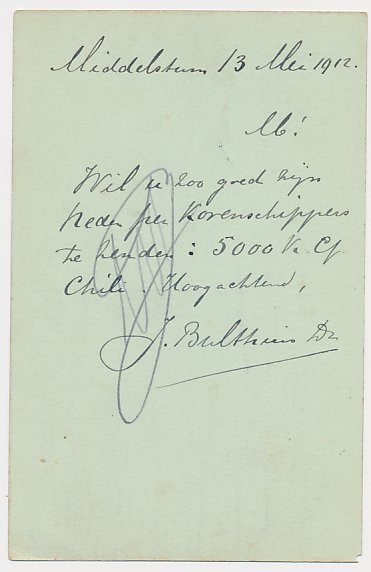 Middelstum 13 Mei 1912.
M!
Wil u zoo goed zijn
heden per Korenschippers
te zenden : 5000 Ko
Chili. Hoogachtend,
J. Bulthuis Dz